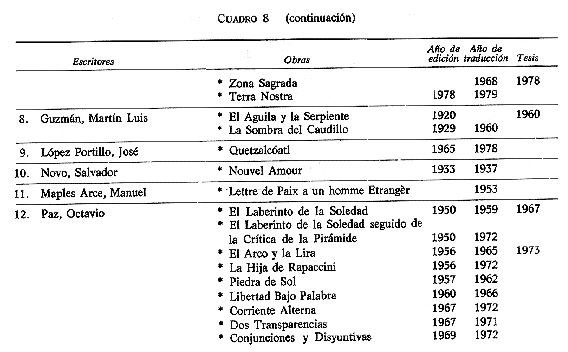 CUADRO 8 (continuación)
Escritores Obras Año de edición Año de traducción Tesis
* Zona Sagrada 1968 1978
* Terra Nostra 1978 1979
8. Guzmán, Martín Luis * El Aguila y la Serpiente 1920 1960
* La Sombra del Caudillo 1929 1960
9. López Portillo, José * Quetzalcóatl 1965 1978
10. Novo, Salvador * Nouvel Amour 1933 1937
11. Maples Arce, Manuel * Lettre de Paix a un homme Etrangèr 1953
12. Paz, Octavio * El Laberinto de la Soledad 1950 1959 1967
* El Laberinto de la Soledad seguido de
la Crítica de la Pirámide 1950 1972
* El Arco y la Lira 1956 1965 1973
* La Hija de Rapaccini 1956 1972
* Piedra de Sol 1957 1962
* Libertad Bajo Palabra 1960 1966
* Corriente Alterna 1967 1972
* Dos Transparencias 1967 1971
* Conjunciones y Disyuntivas 1969 1972